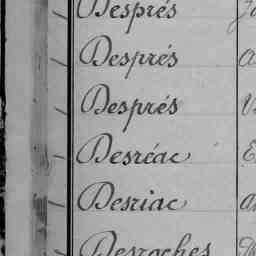 Després
Després
Després
Desréac
Desriac
Desroches